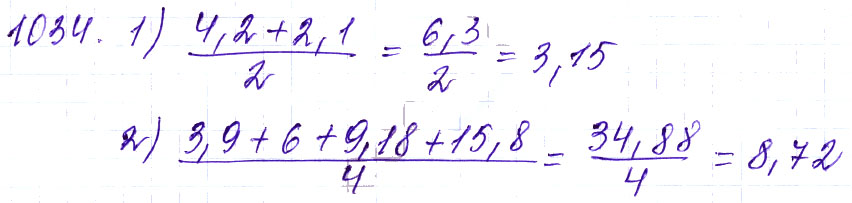 1034. 1) (4,2+2,1)/2 = 6,3/2 = 3,15
2) (3,9+6+9,18+15,8)/4 = 34,88/4 = 8,72